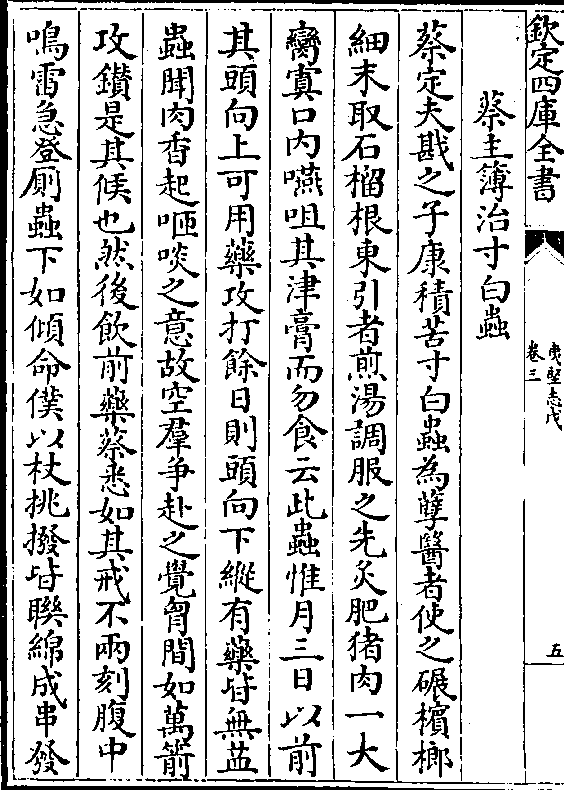 欽定四庫全書
夷堅志戊
卷三
五
蔡主簿治寸白蟲
蔡定夫戡之子康積苦寸白蟲為孽醫者使之碾檳榔
細末取石橊根東引者煎湯調服之先炙肥猪肉一大
臠寘口内嚥咀其津膏而勿食云此蟲惟月三日以前
其頭向上可用藥攻打餘日則頭向下縱有藥皆無益
蟲聞肉香起咂啖之意故空羣爭赴之覺胷間如萬箭
攻鑚是其候也然後飲前藥蔡悉如其戒不兩刻腹中
鳴雷急登厠蟲下如傾命僕以杖挑撥皆聯綿成串發